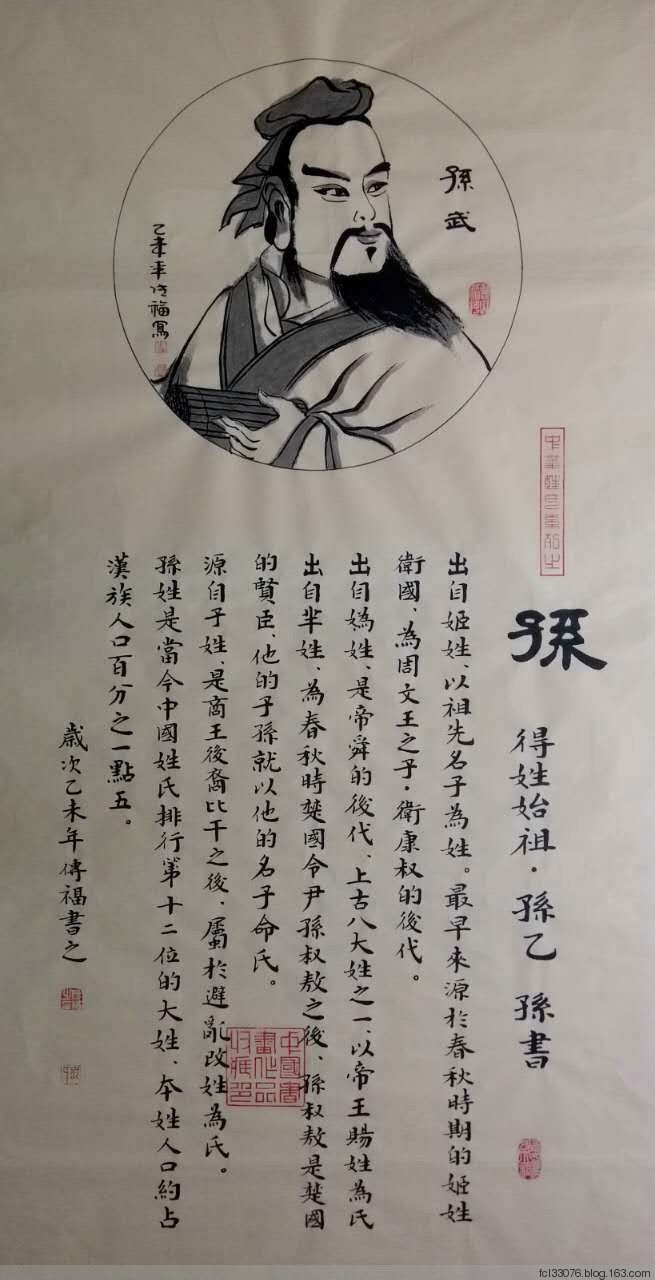 孫武
乙未年傳福寫
中華姓氏皇帝之
孫
得姓始祖·孫乙 孫書
出自姬姓、以祖先名子為姓。最早來源於春秋時期的姬姓
衛國、為周文王之子·衛康叔的後代。
出自媯姓、是帝舜的後代、上古八大姓之一、以帝王賜姓為氏
出自芈姓、為春秋時楚國令尹孫叔敖之後、孫叔敖是楚國
的賢臣、他的子孫就以他的名子命氏。
源自子姓、是商王後裔比干之後、屬於避亂改姓為氏。
孫姓是當今中國姓氏排行第十二位的大姓、本姓人口約占
漢族人口百分之一點五。
歲次乙未年傳福書之
中國書畫作品收藏印
fcl33076.blog.163.com